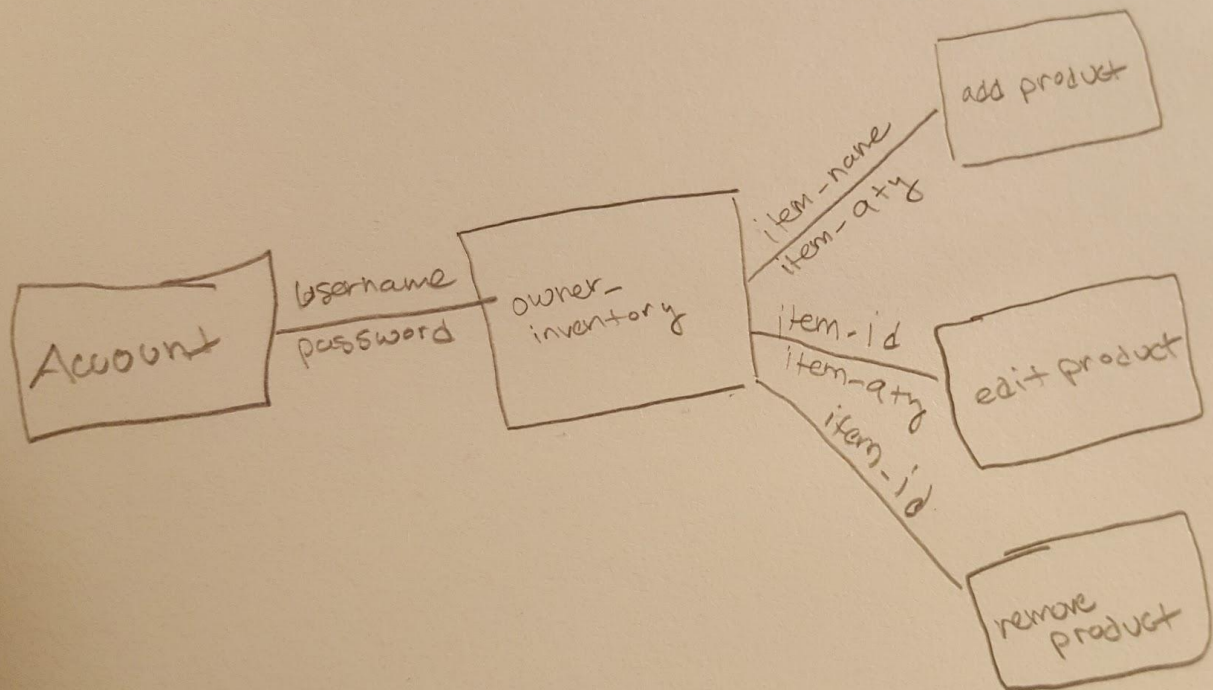 Account
Username
password
owner_
inventory
item_name
item_qty
add product
item_id
item_qty
edit product
item_id
remove
product